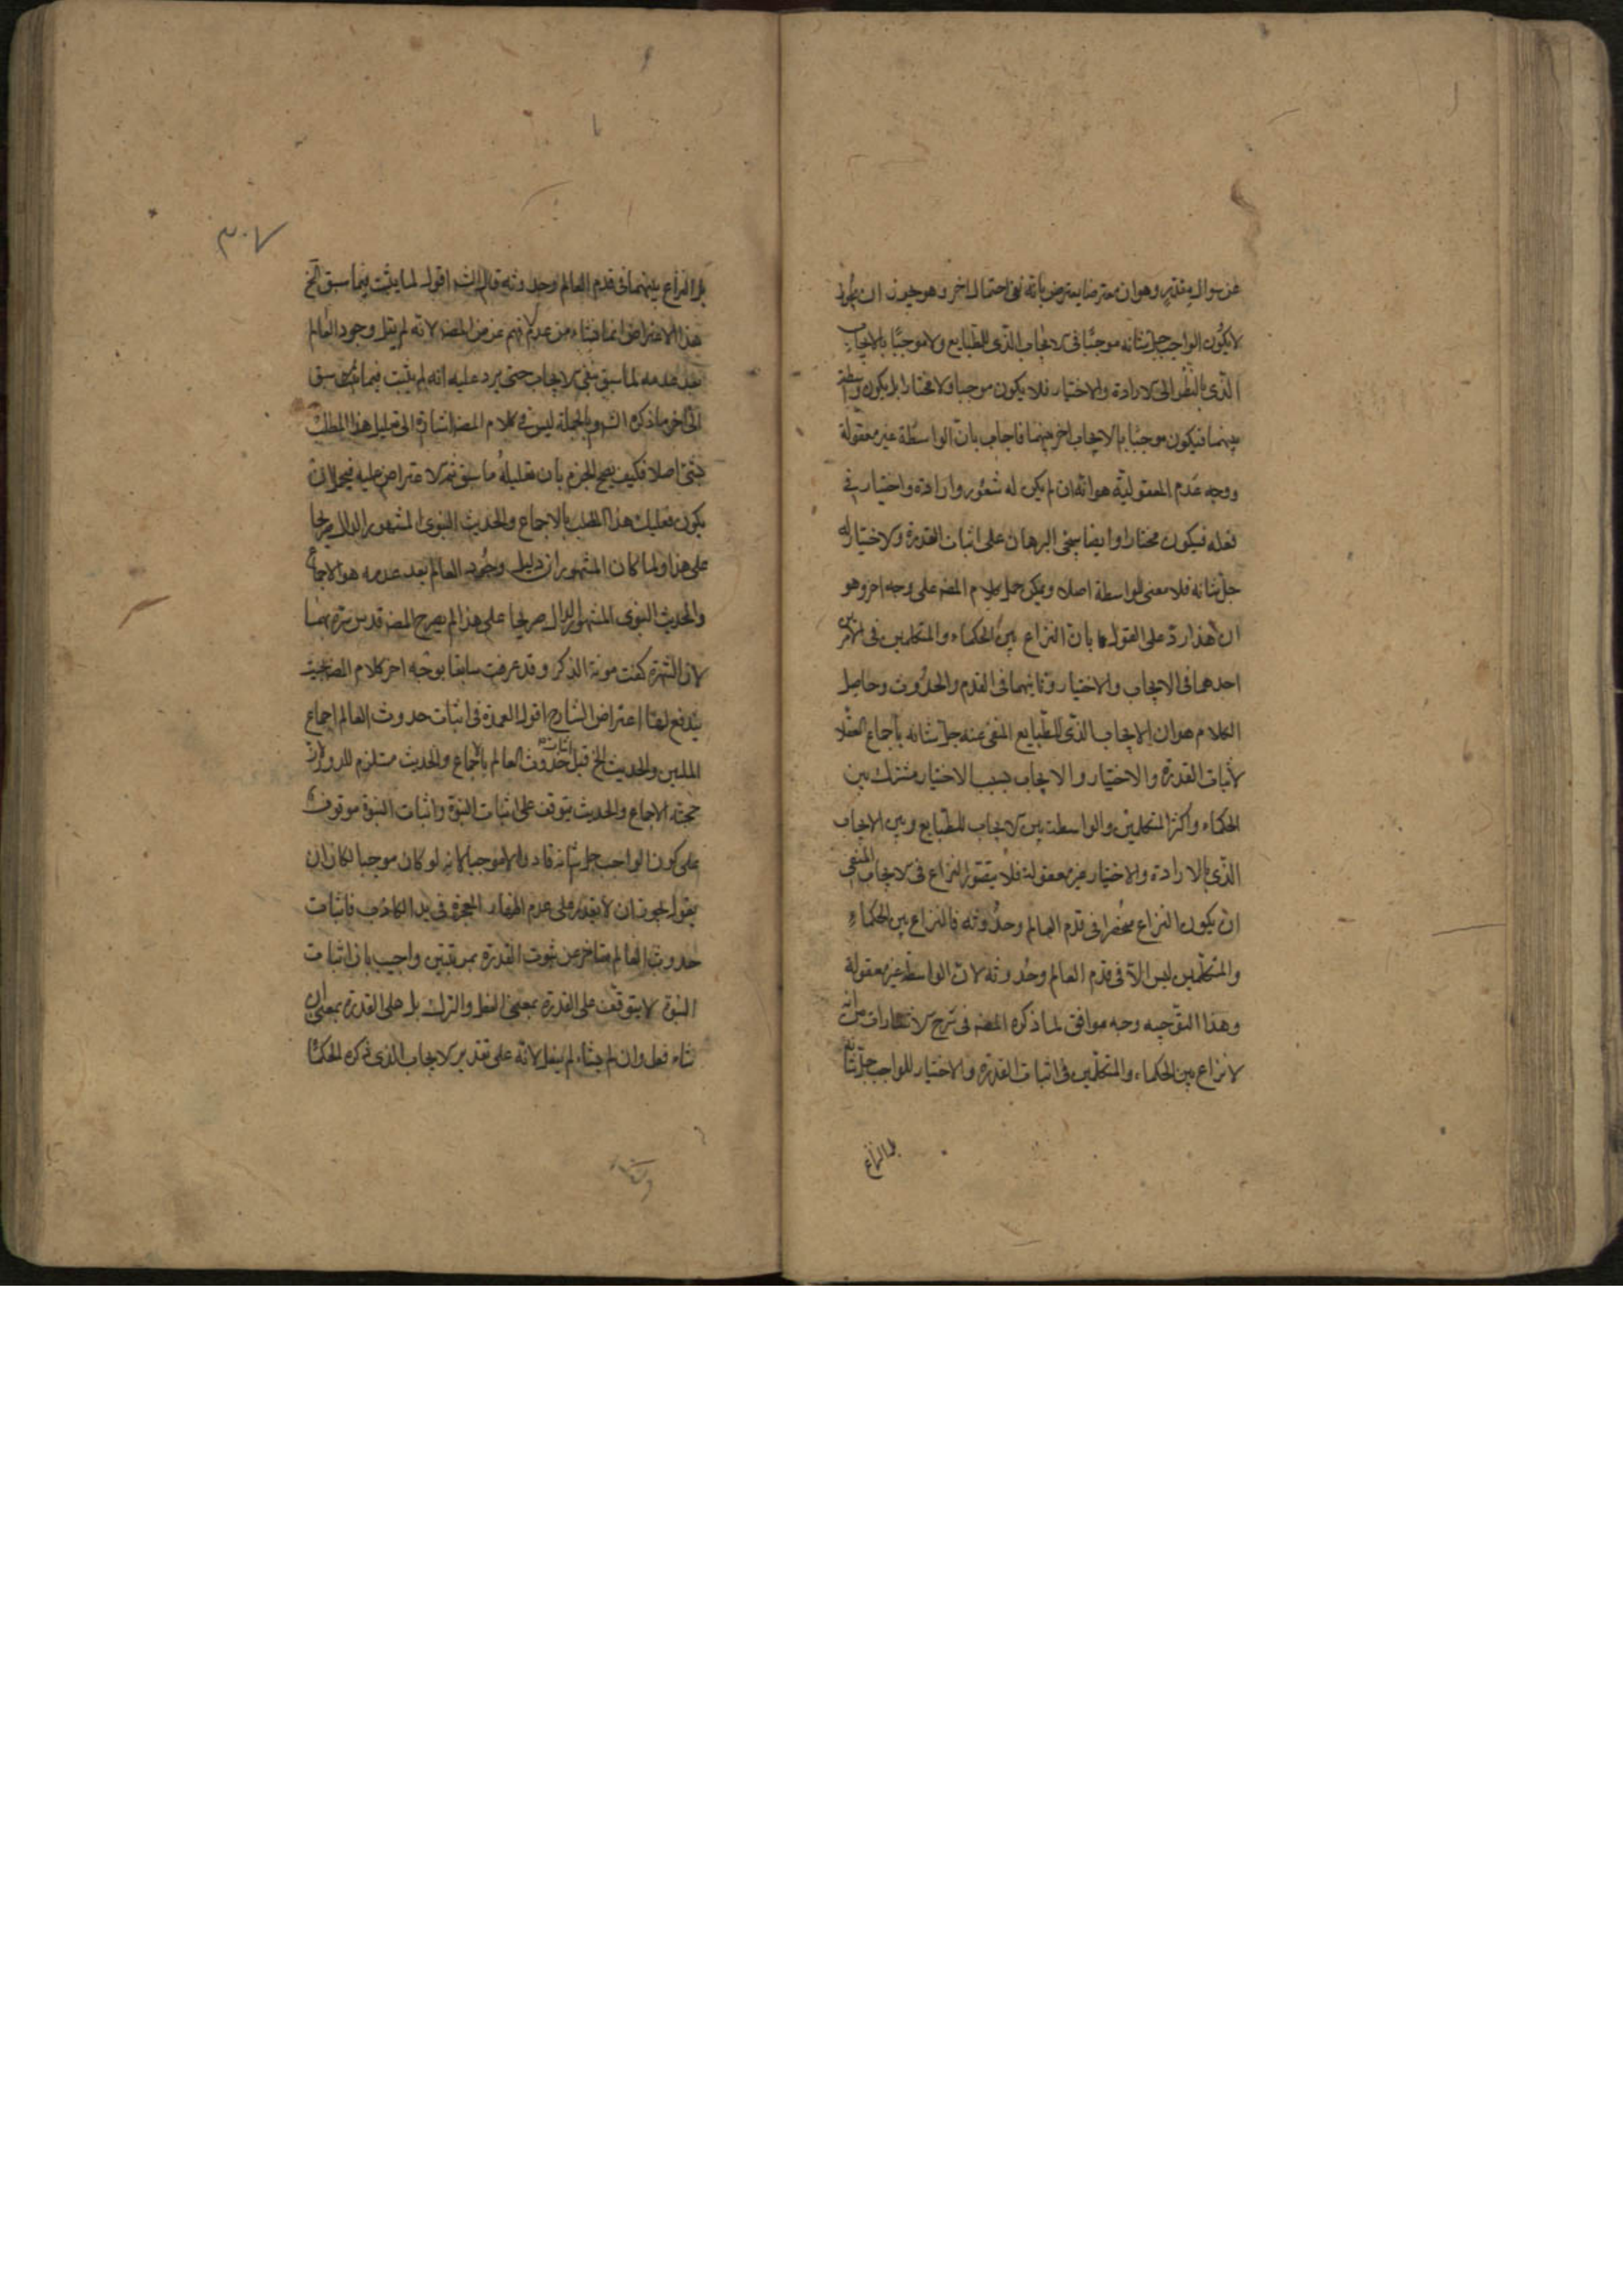 عن سوال مقدر وهو ان معترضا يعترض بانه بقى احتمال اخر وهو يجوز ان يكون
لا يكون الواجب جل شانه موجبا فى الايجاب الذى للطبايع ولا موجبا بالايجاب
الذى بالنظر الى الارادة والاختيار فلا يكون موجبا ولا مختارا بل يكون واسطة
بينهما فيكون موجبا بالايجاب اخر بينهما فاجاب بان الواسطة غير معقولة
ووجه عدم المعقولية هو انه ان لم يكن له شعور وارادة واختيار فى
فعله فيكون مختارا وايضا البرهان على اثبات القدرة والاختيار له
جل شانه فلا معنى لواسطة اصلا ويمكن حمل كلام المصنه على وجه اخر وهو
ان هذا رد على القول بان النزاع بين الحكماء والمتكلمين فى الامرين
احدهما فى الايجاب والاختيار وثانيهما فى القدم والحدوث وحاصل
الكلام هو ان الايجاب الذى للطبايع المنفى عنه جل شانه باجماع العقلا
لاثبات القدرة والاختيار والايجاب بسبب الاختيار مشترك بين
الحكماء واكثر المتكلمين والواسطة بين الايجاب للطبايع وبين الايجاب
الذى بالارادة والاختيار غير معقولة فلا يتصور النزاع فى الايجاب المنفى
ان يكون النزاع منحصرا فى قدم العالم وحدوثه فالنزاع بين الحكماء
والمتكلمين ليس الا فى قدم العالم وحدوثه لان الواسطة غير معقولة
وهذا التوجيه وجه موافق لما ذكره المصنه فى شرح الاشارات من انه
لا نزاع بين الحكماء والمتكلمين فى اثبات القدرة والاختيار للواجب جل شانه
بل النزاع
٣٠٧
بل النزاع بينهما فى قدم العالم وحدوثه قال الشه اقول لما يثبت فيما سبق الخ
هذا الاعتراض انما نشاء من عدم فهم غرض المصنه لانه لم يقل وجود العالم
بعد عدمه لما سبق نفى الايجاب حتى يرد عليه انه لم يثبت فيما سبق
الى اخر ما ذكره الشه وبالجملة ليس فى كلام المصنه اشارة الى تعليل هذا المطلب
بشئ اصلا فكيف يصح الجزم بان تعليله ما سبق ثم الاعتراض عليه فيجوز ان
يكون تعليله هذا المطلب بالاجماع والحديث النبوى المشهور الدال صريحا
على هذا ولما كان المشهور ان دليل وجود العالم بعد عدمه هو الاجماع
والحديث النبوى المشهور الدال صريحا على هذا لم يصرح المصنه قدس سره بهما
لان الشهرة كفت مونة الذكر وقد عرفت سابقا بوجه اخر كلام المصنه بحيث
يندفع اعتراض الشارح اقول العمدة فى اثبات حدوث العالم اجماع
المليين والحديث الخ قيل اثبات حدوث العالم بالاجماع والحديث مستلزم للدور لان
حجية الاجماع والحديث يتوقف على اثبات النبوة واثبات النبوة موقوف
على كون الواجب جل شانه قادرا لا موجبا لانه لو كان موجبا لكان ان
يقول يجوز ان لا يقدر على عدم اظهار المعجزة فى يد الكاذب فاثبات
حدوث العالم متاخر عن ثبوت القدرة بمرتبتين واجيب بان اثبات
النبوة لا يتوقف على القدرة بمعنى الفعل والترك بل على القدرة بمعنى ان
شاء فعل وان لم يشاء لم يفعل لانه على تقدير الايجاب الذى ذكره الحكماء